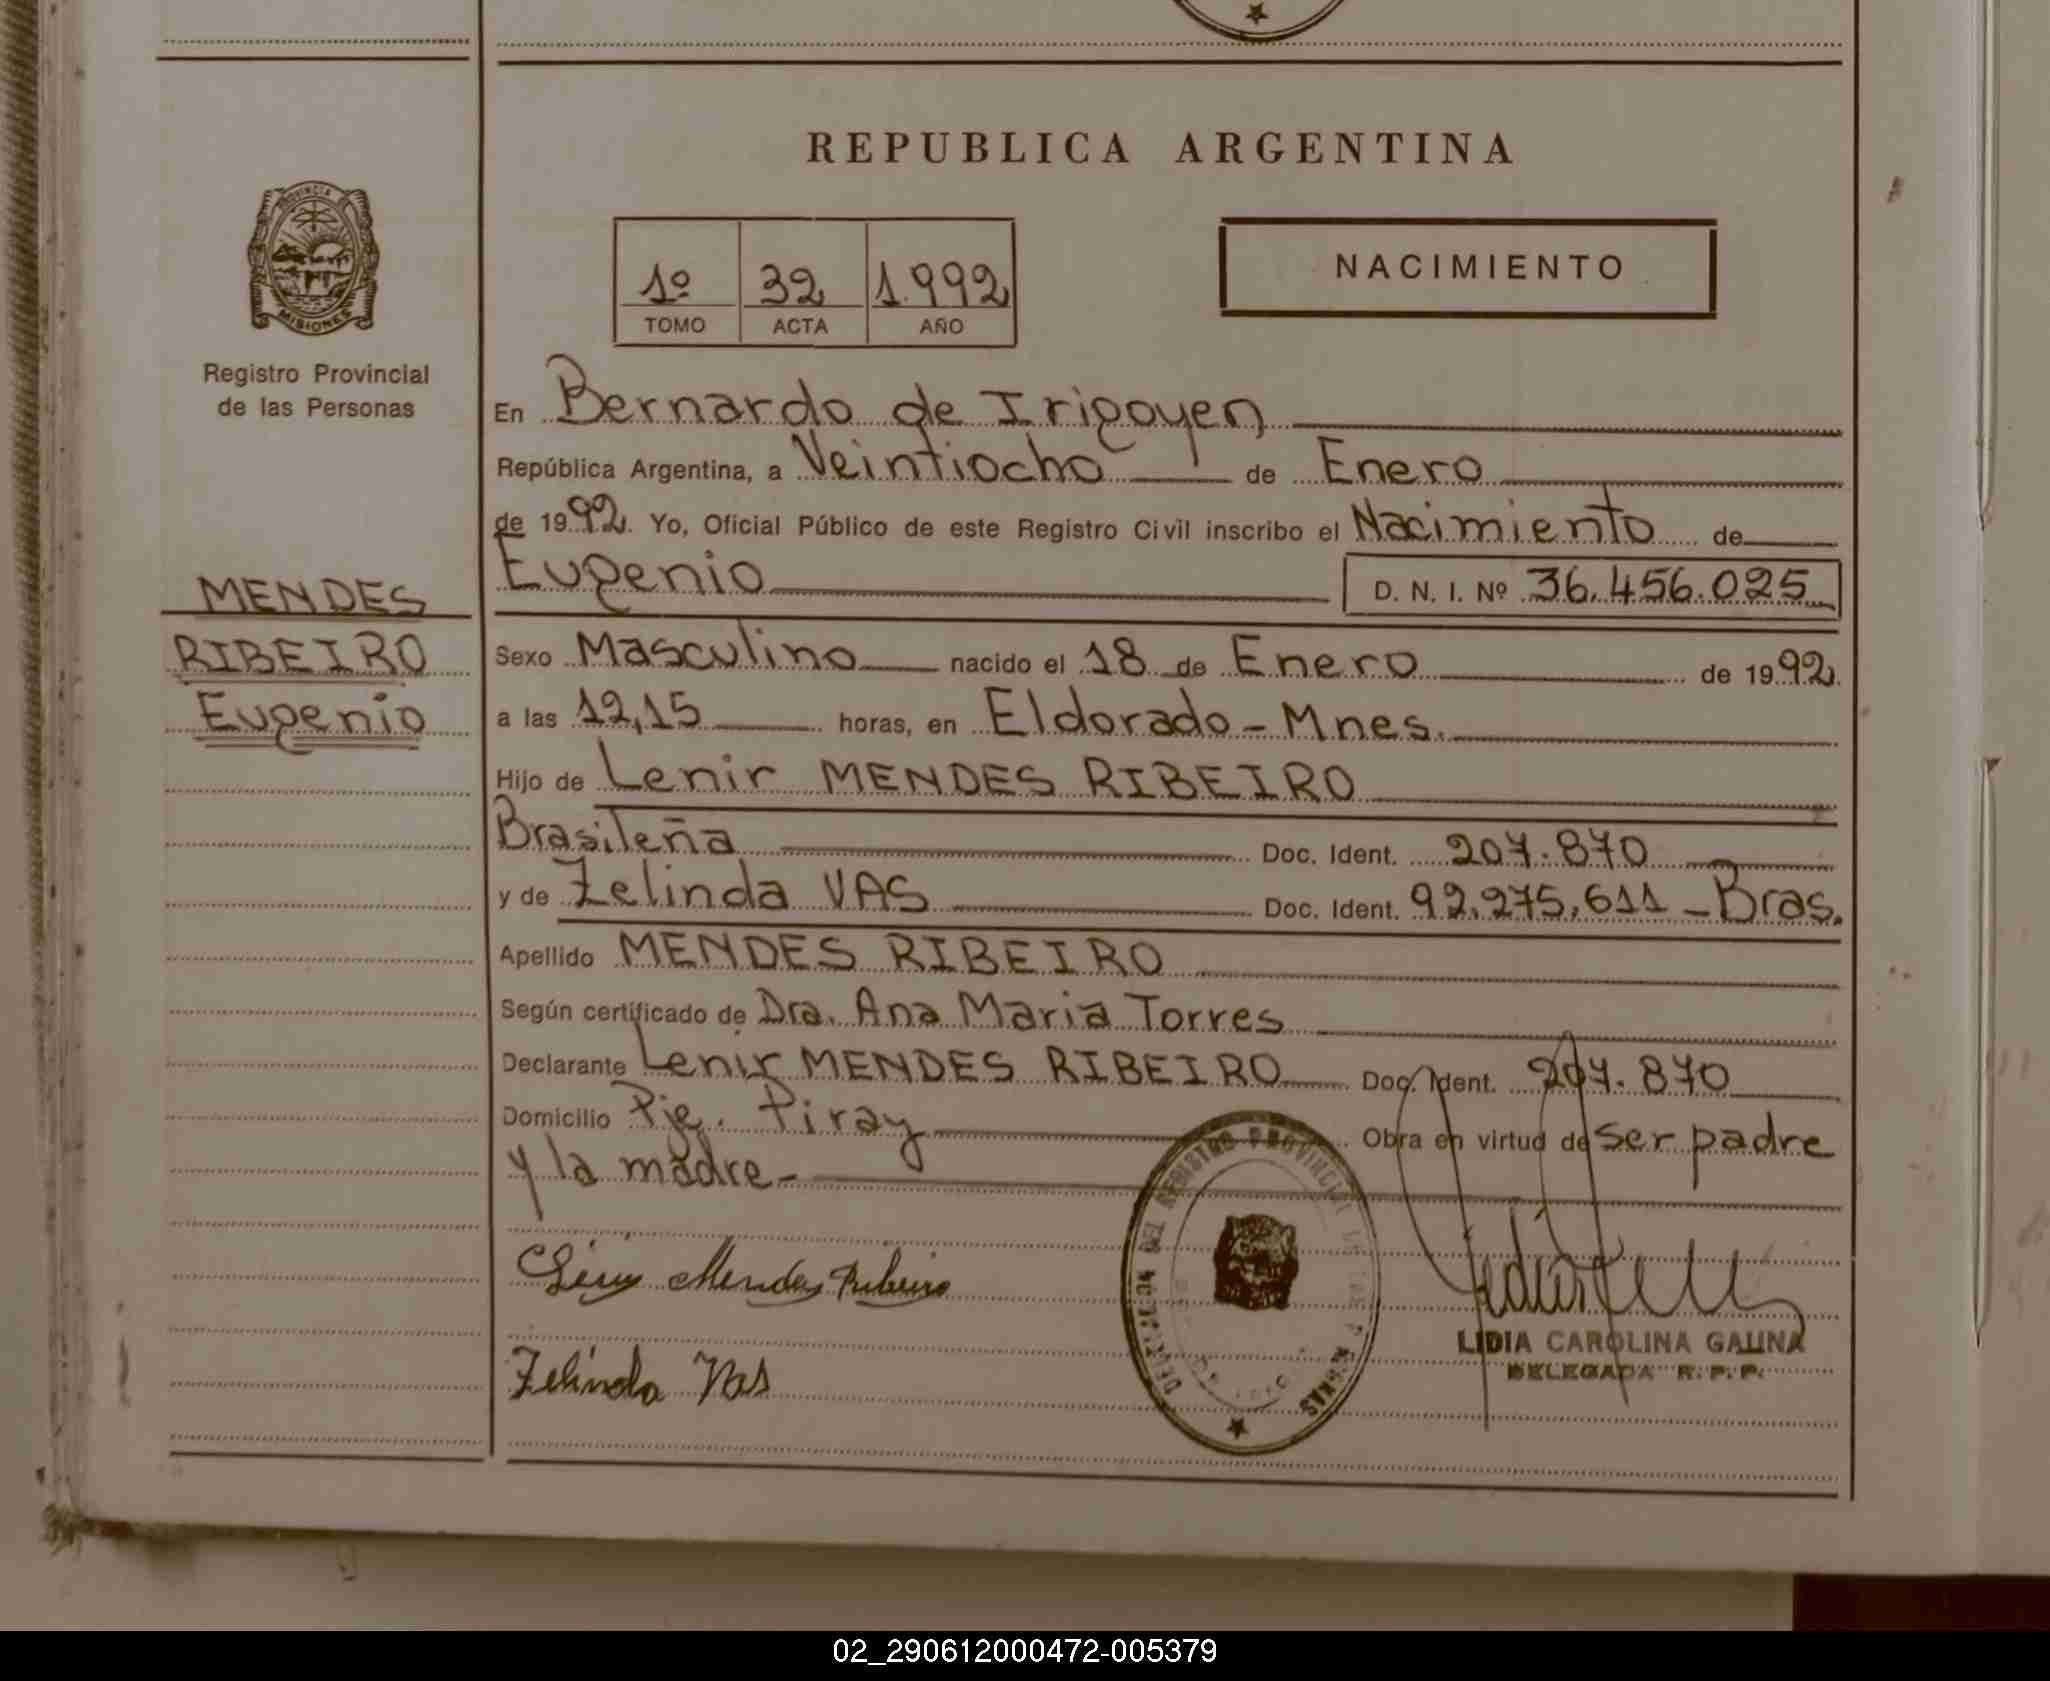 REPUBLICA ARGENTINA
PROVINCIA
MISIONES
Registro Provincial
de las Personas
1º 32 1.992
TOMO ACTA AÑO
NACIMIENTO
En Bernardo de Irigoyen
República Argentina, a Veintiocho de Enero
de 1992. Yo, Oficial Público de este Registro Civil inscribo el Nacimiento de
Eugenio D. N. I. Nº 36.456.025
MENDES
RIBEIRO
Eugenio
Sexo Masculino nacido el 18 de Enero de 1992.
a las 12,15 horas, en Eldorado - Mnes.
Hijo de Lenir MENDES RIBEIRO
Brasileña Doc. Ident. 207.870
y de Zelinda VAS Doc. Ident. 92.275.611 - Bras.
Apellido MENDES RIBEIRO
Según certificado de Dra. Ana Maria Torres
Declarante Lenir MENDES RIBEIRO Doc. Ident. 207.870
Domicilio Pje. Piray Obra en virtud de Ser padre
y la madre-
Lenir Mendes Ribeiro
Zelinda Vas
DEL REGISTRO PROVINCIAL DE LAS PERSONAS
LIDIA CAROLINA GALINA
DELEGADA R. P. P.
02_290612000472-005379